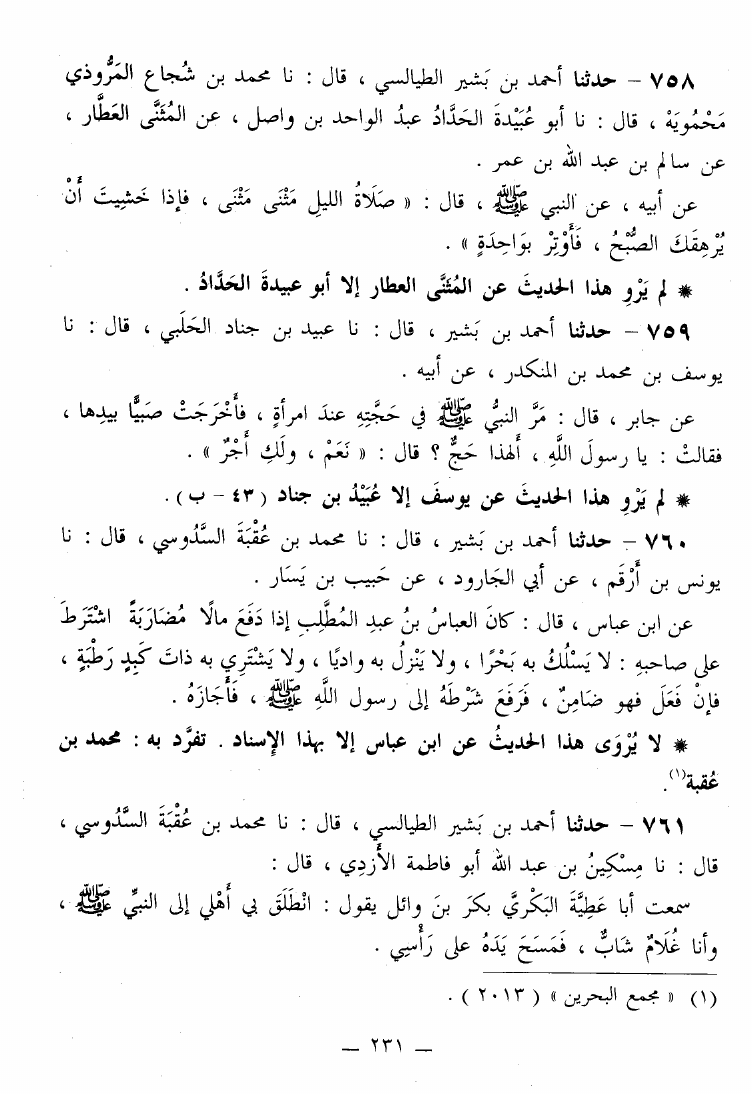 ٧٥٨ – حدثنا أحمد بن بَشير الطيالسي ، قال : نا محمد بن شُجاع المَرُّوذي
مَحْمُويَهْ ، قال : نا أبو عُبَيْدةَ الحَدَّادُ عبدُ الواحد بن واصل ، عن المُثَنَّى العَطَّار ،
عن سالم بن عبد الله بن عمر .
عن أبيه ، عن النبي ﷺ ، قال : « صَلَاةُ الليلِ مَثْنَى مَثْنَى ، فإذا خَشِيتَ أَنْ
يُرْهِقَكَ الصُّبْحُ ، فَأَوْتِرْ بوَاحِدَةٍ » .
* لم يَرْوِ هذا الحديثَ عن المُثَنَّى العطار إلا أبو عبيدةَ الحَدَّادُ .
٧٥٩ – حدثنا أحمد بن بَشير ، قال : نا عبيد بن جناد الحَلَبي ، قال : نا
يوسف بن محمد بن المنكدر ، عن أبيه .
عن جابر ، قال : مَرَّ النبيُّ ﷺ في حَجَّتِهِ عندَ امرأةٍ ، فأَخْرَجَتْ صَبيًّا بيدِها ،
فقالتْ : يا رسولَ اللَّهِ ، أَلهذا حَجٌّ ؟ قال : « نَعَمْ ، ولَكِ أَجْرٌ » .
* لم يَرْوِ هذا الحديثَ عن يوسفَ إلا عُبَيْدُ بن جناد ( ٤٣ – ب ) .
٧٦٠ – حدثنا أحمد بن بَشير ، قال : نا محمد بن عُقْبَةَ السَّدُوسي ، قال : نا
يونس بن أَرْقَم ، عن أبي الجارود ، عن حَبيب بن يَسَار .
عن ابن عباس ، قال : كانَ العباسُ بنُ عبدِ المُطَّلِبِ إذا دَفَعَ مالًا مُضَارَبَةً اشْتَرَطَ
على صاحبهِ : لا يَسْلُكُ به بَحْرًا ، ولا يَنْزِلُ به واديًا ، ولا يَشْتَرِي به ذاتَ كَبِدٍ رَطْبَةٍ ،
فإنْ فَعَلَ فهو ضَامِنٌ ، فَرَفَعَ شَرْطَهُ إلى رسول اللَّهِ ﷺ ، فَأَجَازَهُ .
* لا يُرْوَى هذا الحديثُ عن ابن عباس إلا بهذا الإِسناد . تفرَّد به : محمد بن
عُقبة(١).
٧٦١ – حدثنا أحمد بن بَشير الطيالسي ، قال : نا محمد بن عُقْبَةَ السَّدُوسي ،
قال : نا مِسْكِينُ بن عبد الله أبو فاطمة الأَزدِي ، قال :
سمعت أبا عَطِيَّةَ البَكْريَّ بكرَ بنَ وائل يقول : انْطَلَقَ بي أَهْلي إلى النبيِّ ﷺ ،
وأنا غُلَامٌ شَابٌّ ، فَمَسَحَ يَدَهُ على رَأْسِي .
(١) « مجمع البحرين » ( ٢٠١٣ ) .
– ٢٣١ –